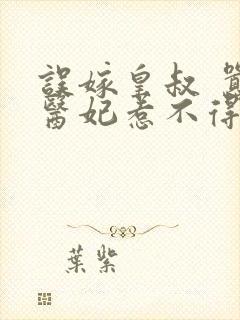 誤嫁皇叔
醫妃惹不得
葉紫